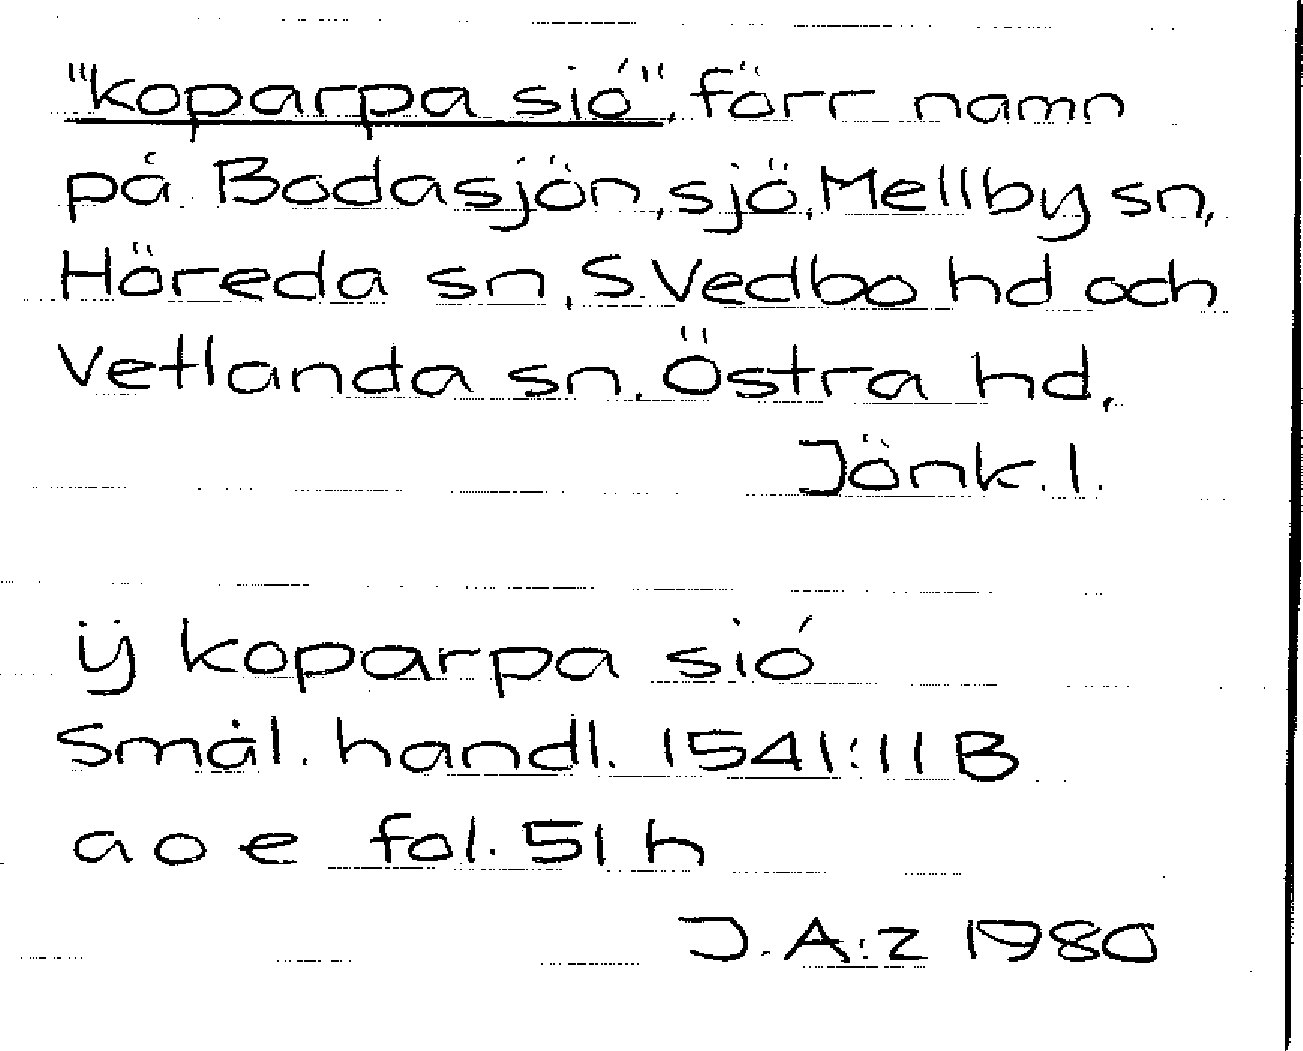 "koparpa sió", förr namn
på Bodasjön, sjö, Mellby sn,
Höreda sn, S. Vedbo hd och
Vetlanda sn. Östra hd,
Jönk. l.
ÿ koparpa sió
Smål. handl. 1541:11 B
a o e fol. 51 h
J. A:z 1980